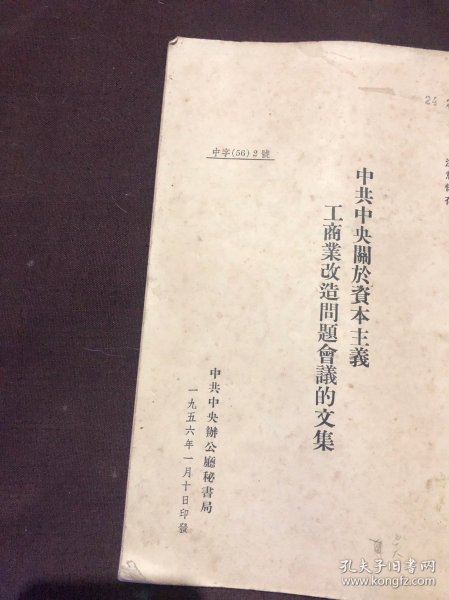 24
中字(56)2號
中共中央關於資本主義
工商業改造問題會議的文集
中共中央辦公廳秘書局
一九五六年一月十日印發
孔夫子旧书网
www.kongfz.com